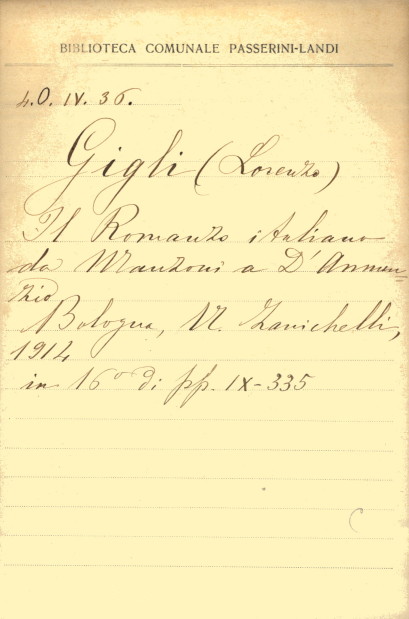 BIBLIOTECA COMUNALE PASSERINI-LANDI
4.O. IV. 36.
Gigli (Lorenzo)
Il Romanzo italiano
da Manzoni a D'Annun=
zio
Bologna, N. Zanichelli,
1914
in 16° di pp. IX-335